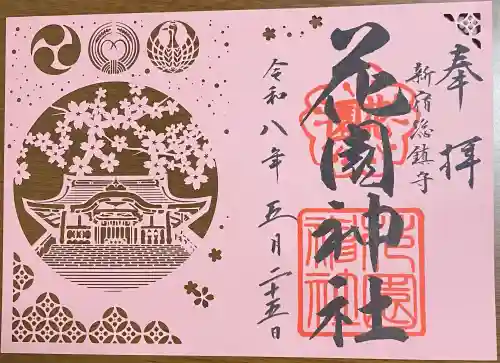 奉拝
新宿総鎮守
花園神社
令和八年五月二十五日